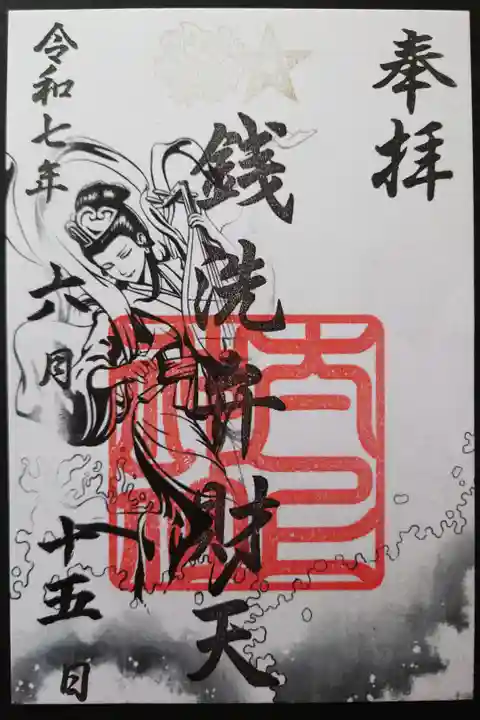 奉拝
銭洗弁財天
令和七年
六月
十五日